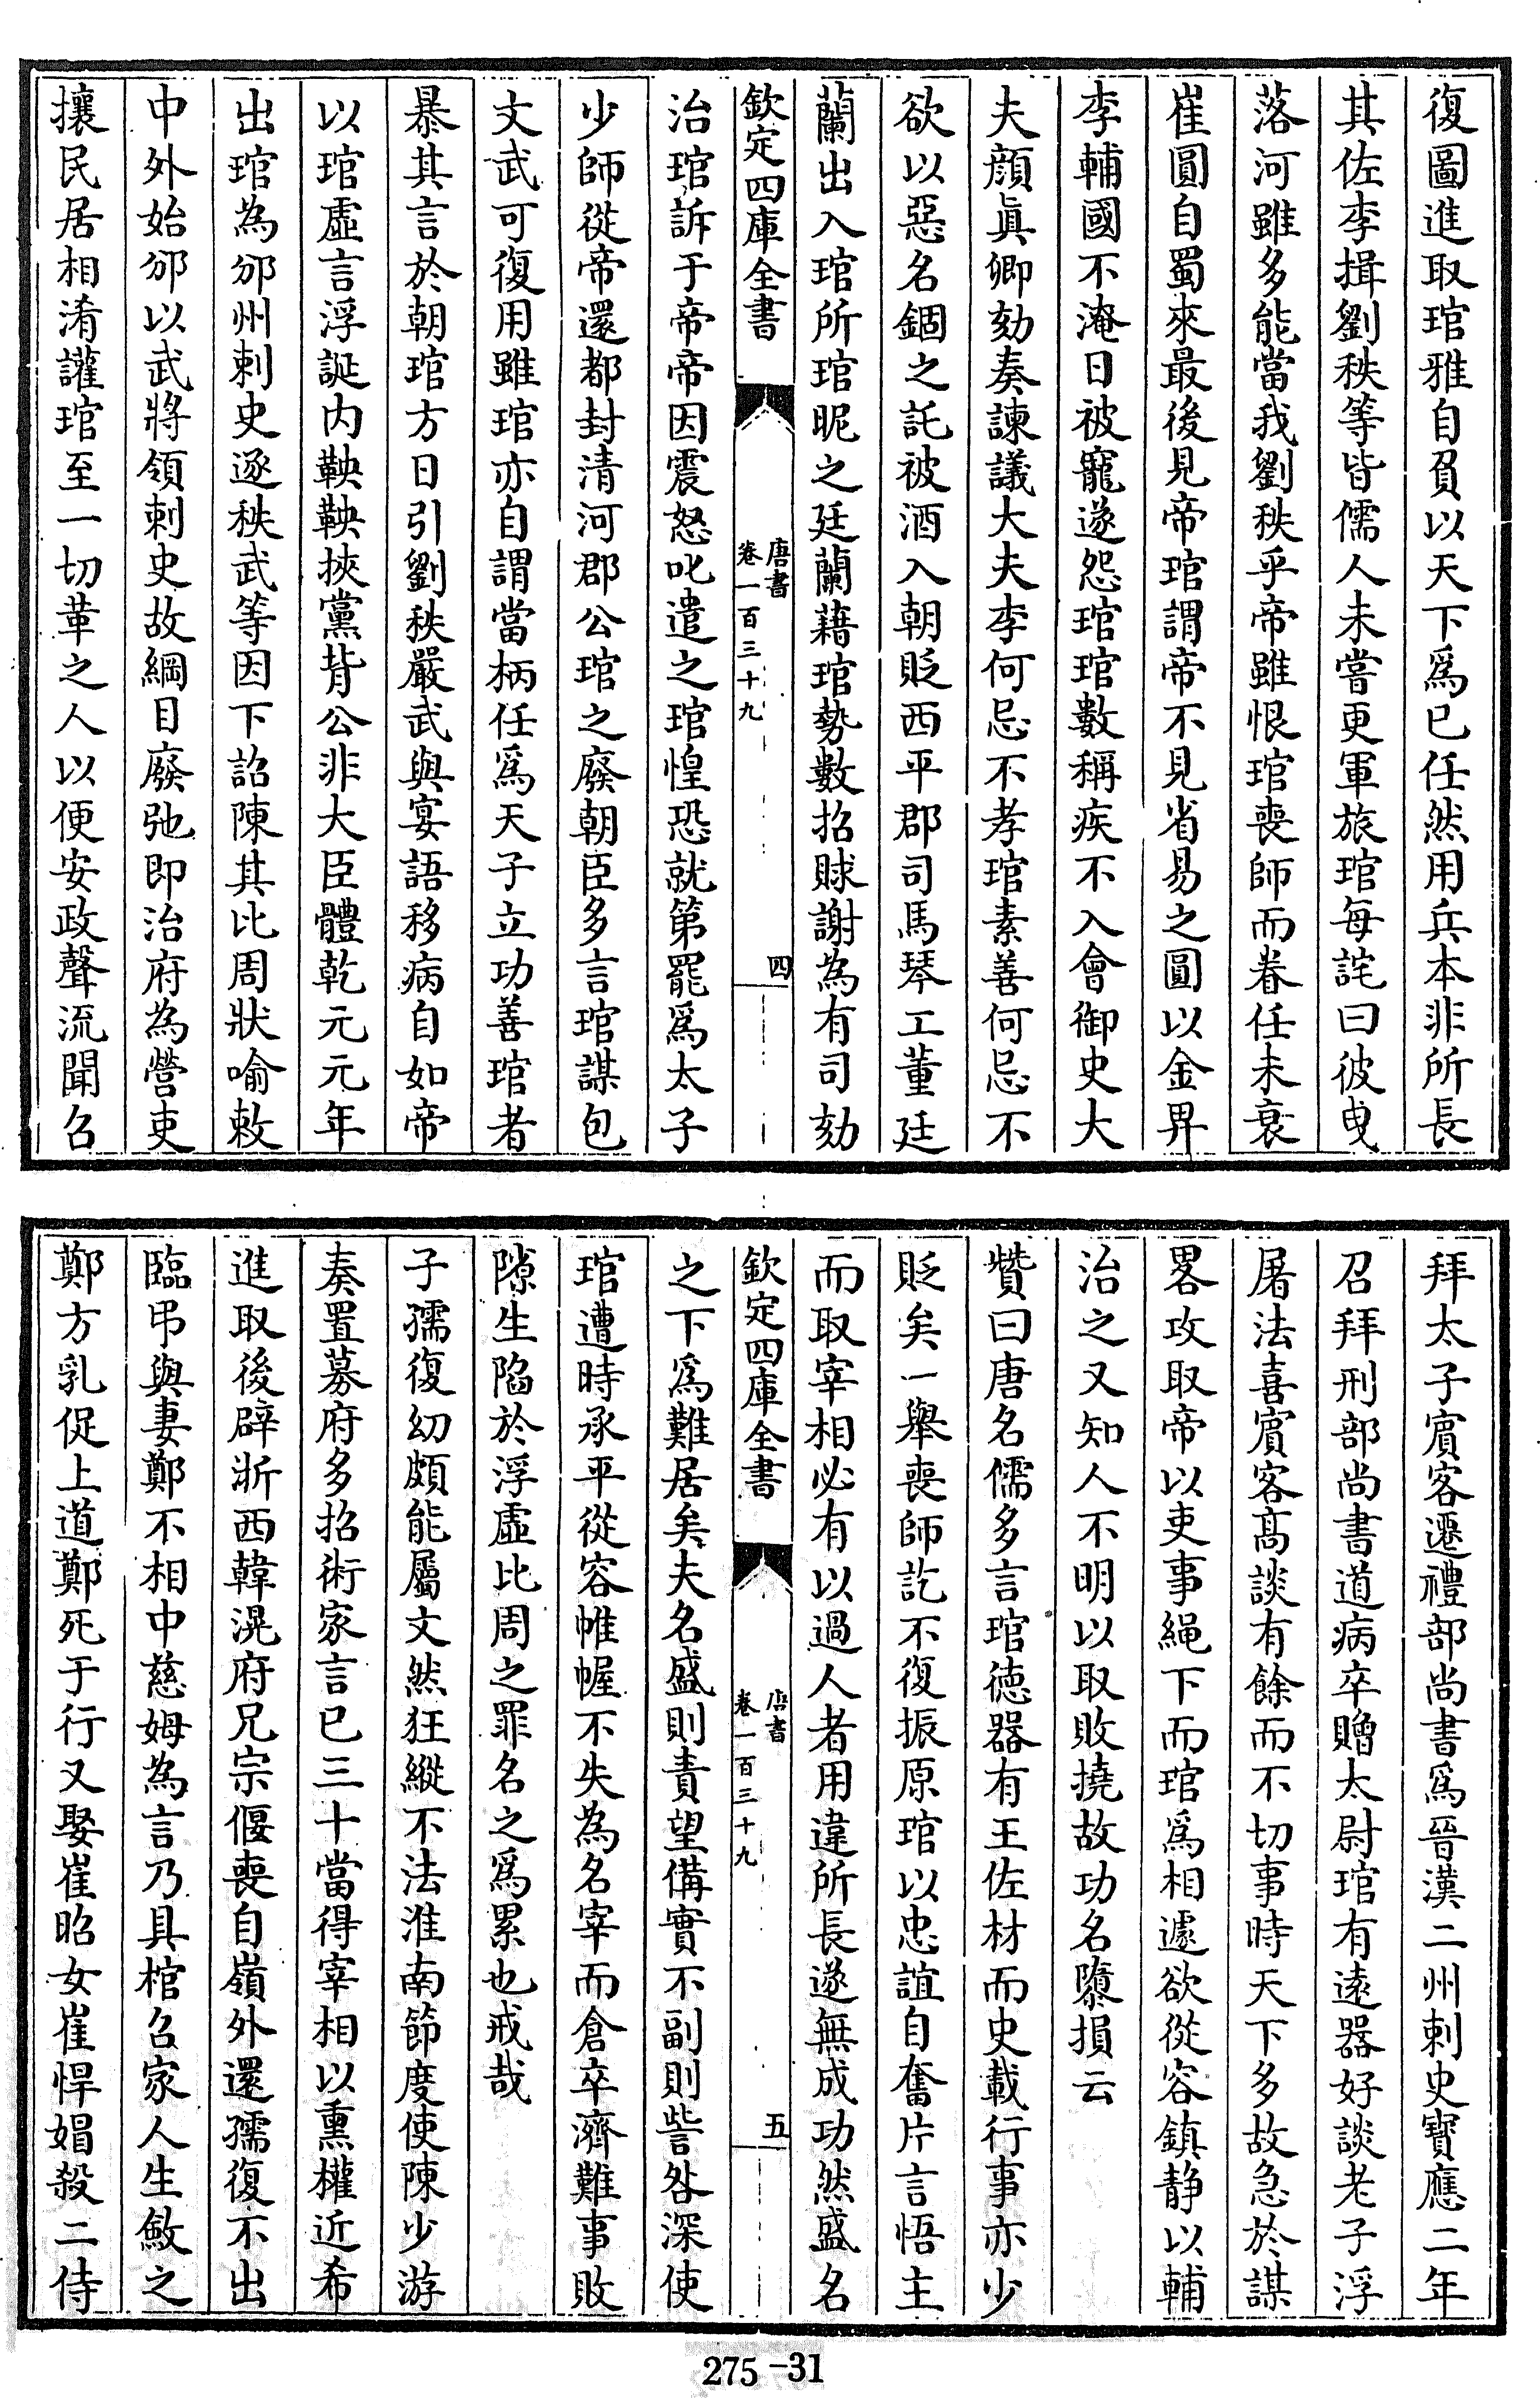 復圖進取琯雅自負以天下爲已任然用兵本非所長
其佐李揖劉秩等皆儒人未嘗更軍旅琯每詫曰彼曵
落河雖多能當我劉秩乎帝雖恨琯喪師而眷任未衰
崔圓自蜀來最後見帝琯謂帝不見省易之圓以金畀
李輔國不淹日被寵遂怨琯琯數稱疾不入會御史大
夫顔眞卿劾奏諫議大夫李何忌不孝琯素善何忌不
欲以惡名錮之託被酒入朝貶西平郡司馬琴工董廷
蘭出入琯所琯昵之廷蘭藉琯勢數招賕謝為有司劾
欽定四庫全書
唐書
卷一百三十九
四
治琯訴于帝帝因震怒叱遣之琯惶恐就第罷爲太子
少師從帝還都封清河郡公琯之廢朝臣多言琯謀包
文武可復用雖琯亦自謂當柄任爲天子立功善琯者
暴其言於朝琯方日引劉秩嚴武與宴語移病自如帝
以琯虛言浮誕内鞅鞅挾黨背公非大臣體乾元元年
出琯為邠州刺史逐秩武等因下詔陳其比周狀喻敕
中外始邠以武將領刺史故綱目廢弛即治府為營吏
攘民居相淆讙琯至一切革之人以便安政聲流聞召
拜太子賔客遷禮部尚書爲晉漢二州刺史寶應二年
召拜刑部尚書道病卒贈太尉琯有遠器好談老子浮
屠法喜賔客髙談有餘而不切事時天下多故急於謀
畧攻取帝以吏事繩下而琯爲相遽欲從容鎮静以輔
治之又知人不明以取敗撓故功名隳損云
贊曰唐名儒多言琯徳器有王佐材而史載行事亦少
貶矣一舉喪師訖不復振原琯以忠誼自奮片言悟主
而取宰相必有以過人者用違所長遂無成功然盛名
欽定四庫全書
唐書
卷一百三十九
五
之下爲難居矣夫名盛則責望備實不副則訾咎深使
琯遭時承平從容帷幄不失為名宰而倉卒濟難事敗
隙生陷於浮虛比周之罪名之爲累也戒哉
子孺復幼頗能屬文然狂縱不法淮南節度使陳少游
奏置募府多招術家言已三十當得宰相以熏權近希
進取後辟浙西韓滉府兄宗偃喪自嶺外還孺復不出
臨弔與妻鄭不相中慈姆為言乃具棺召家人生斂之
鄭方乳促上道鄭死于行又娶崔昭女崔悍媢殺二侍
275-31